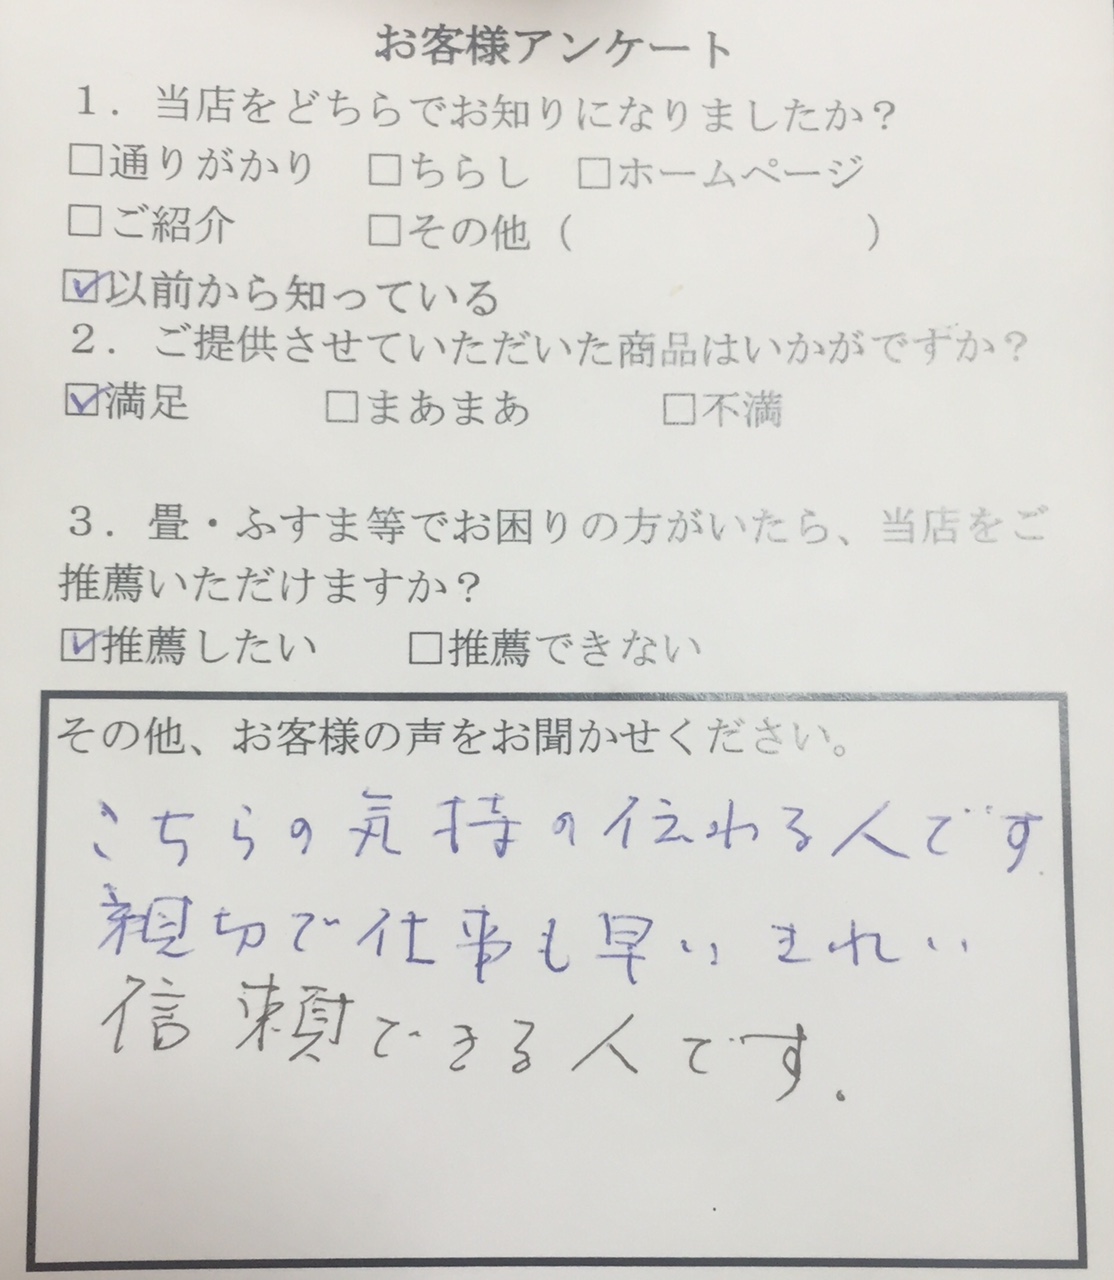 お客様アンケート
１．当店をどちらでお知りになりましたか？
□通りがかり　□ちらし　□ホームページ
□ご紹介　□その他（　　　　　　　）
☑以前から知っている
２．ご提供させていただいた商品はいかがですか？
☑満足　□まあまあ　□不満
３．畳・ふすま等でお困りの方がいたら、当店をご
推薦いただけますか？
☑推薦したい　□推薦できない
その他、お客様の声をお聞かせください。
こちらの気持の伝わる人です.
親切で仕事も早いきれい
信頼できる人です.